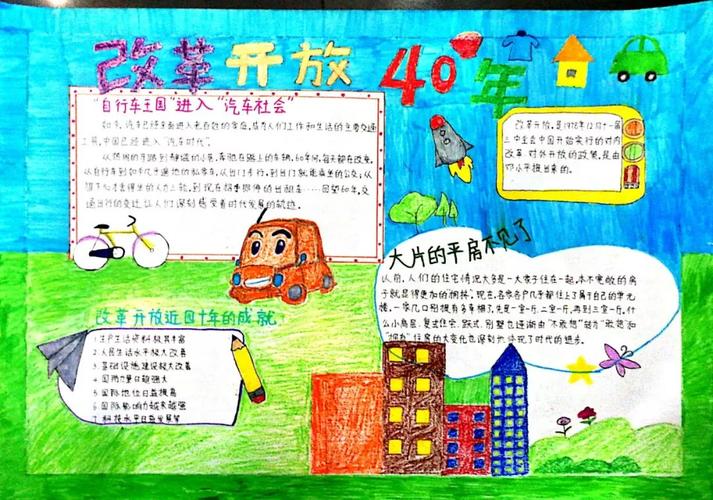 改革开放40年
"自行车王国"进入"汽车社会"
如今,汽车已经全面进入老百姓的家庭,成为人们工作和生活的主要交通
工具,中国已经进入"汽车时代"。
从热闹的马路到静谧的小巷,奔驰在路上的车辆,60年间,每天都在改变,
从自行车到如今几乎遍地的私家车,从出门步行,到出门就能乘坐的公交;从
到现在招手即停的出租车……回望60年,交
通出行的变迁,让人们深刻感受着时代发展的轨迹。
改革开放,是1978年12月十一届
三中全会中国开始实行的对内
改革、对外开放的政策,是由
邓小平提出来的。
大片的平房不见了
以前,人们的住宅情况大多是一大家子住在一起,本不宽敞的房
子就显得更加的"拥挤"。现在,各家各户几乎都住上了属于自己的单元
楼,一家几口别提有多幸福了,先是一室一厅,二室一厅,再到三室一厅,什
么小高层、复式住宅、跃式、别墅也逐渐由"不敢想"转为"敢想"和
"拥有",住房的大变化也深刻地体现了时代的进步。
改革开放近四十年的成就
1.生产生活资料极其丰富
2.人民生活水平极大改善
3.基础设施建设极大改善
4.国防力量日益强大
5.国际地位日益提高
6.国际影响力越来越强
7.科技水平日益发展